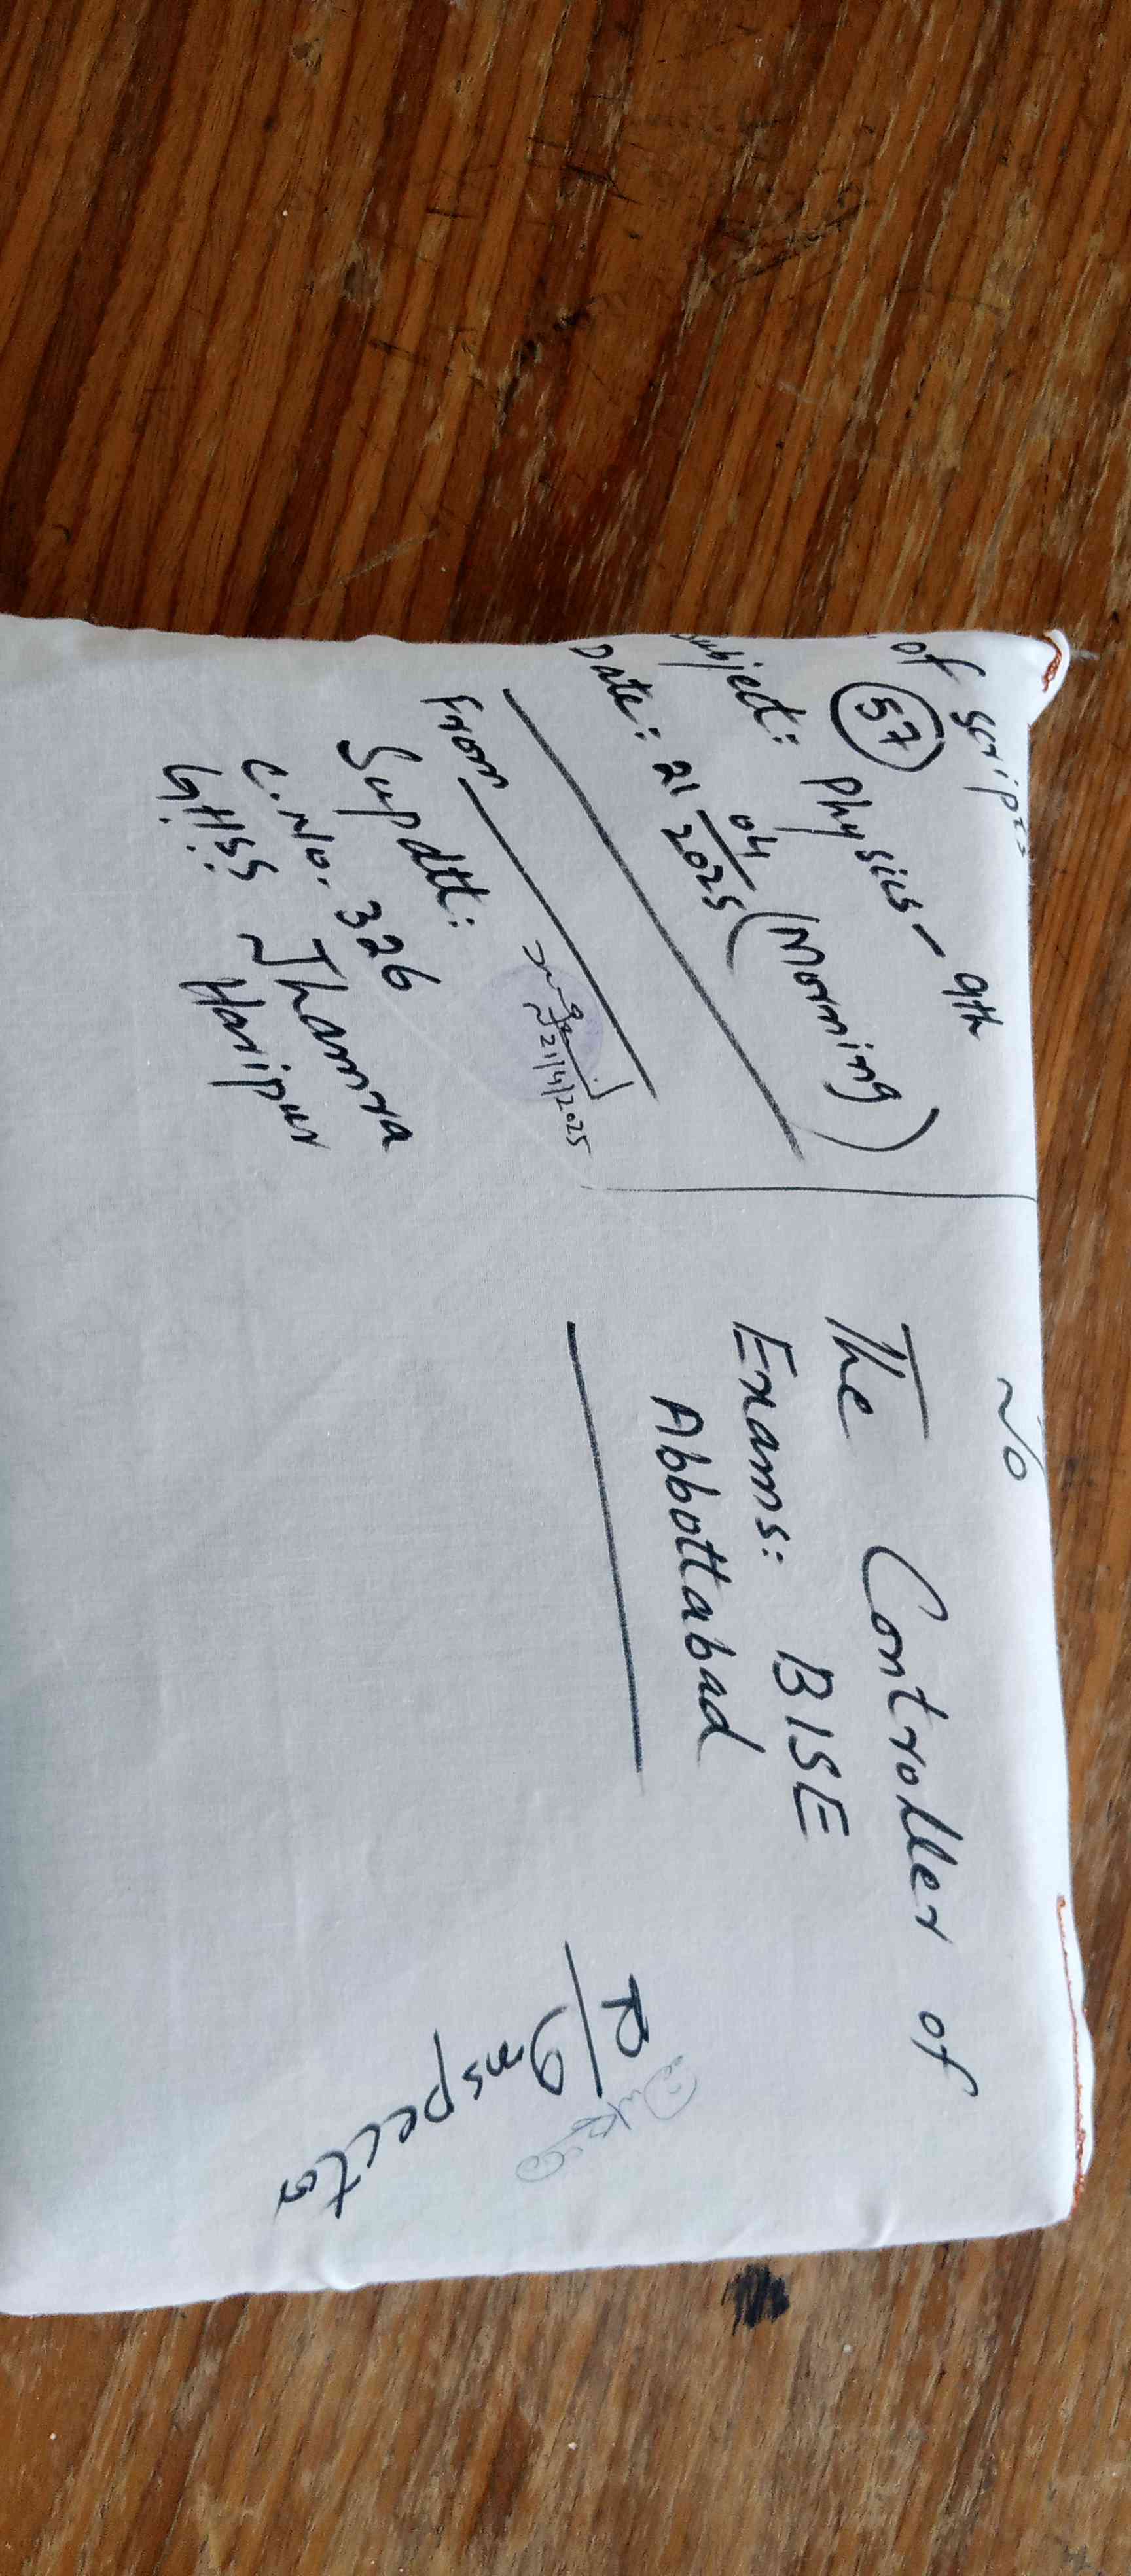 of scripts
57
Subject: Physics - 9th
Date: 21/04/2025 (Morning)
From
Supdtt:
C.No. 326
GHSS Jhamra
Haripur
21/4/2025
To
The Controller of
Exams: BISE
Abbottabad
R/
Inspector